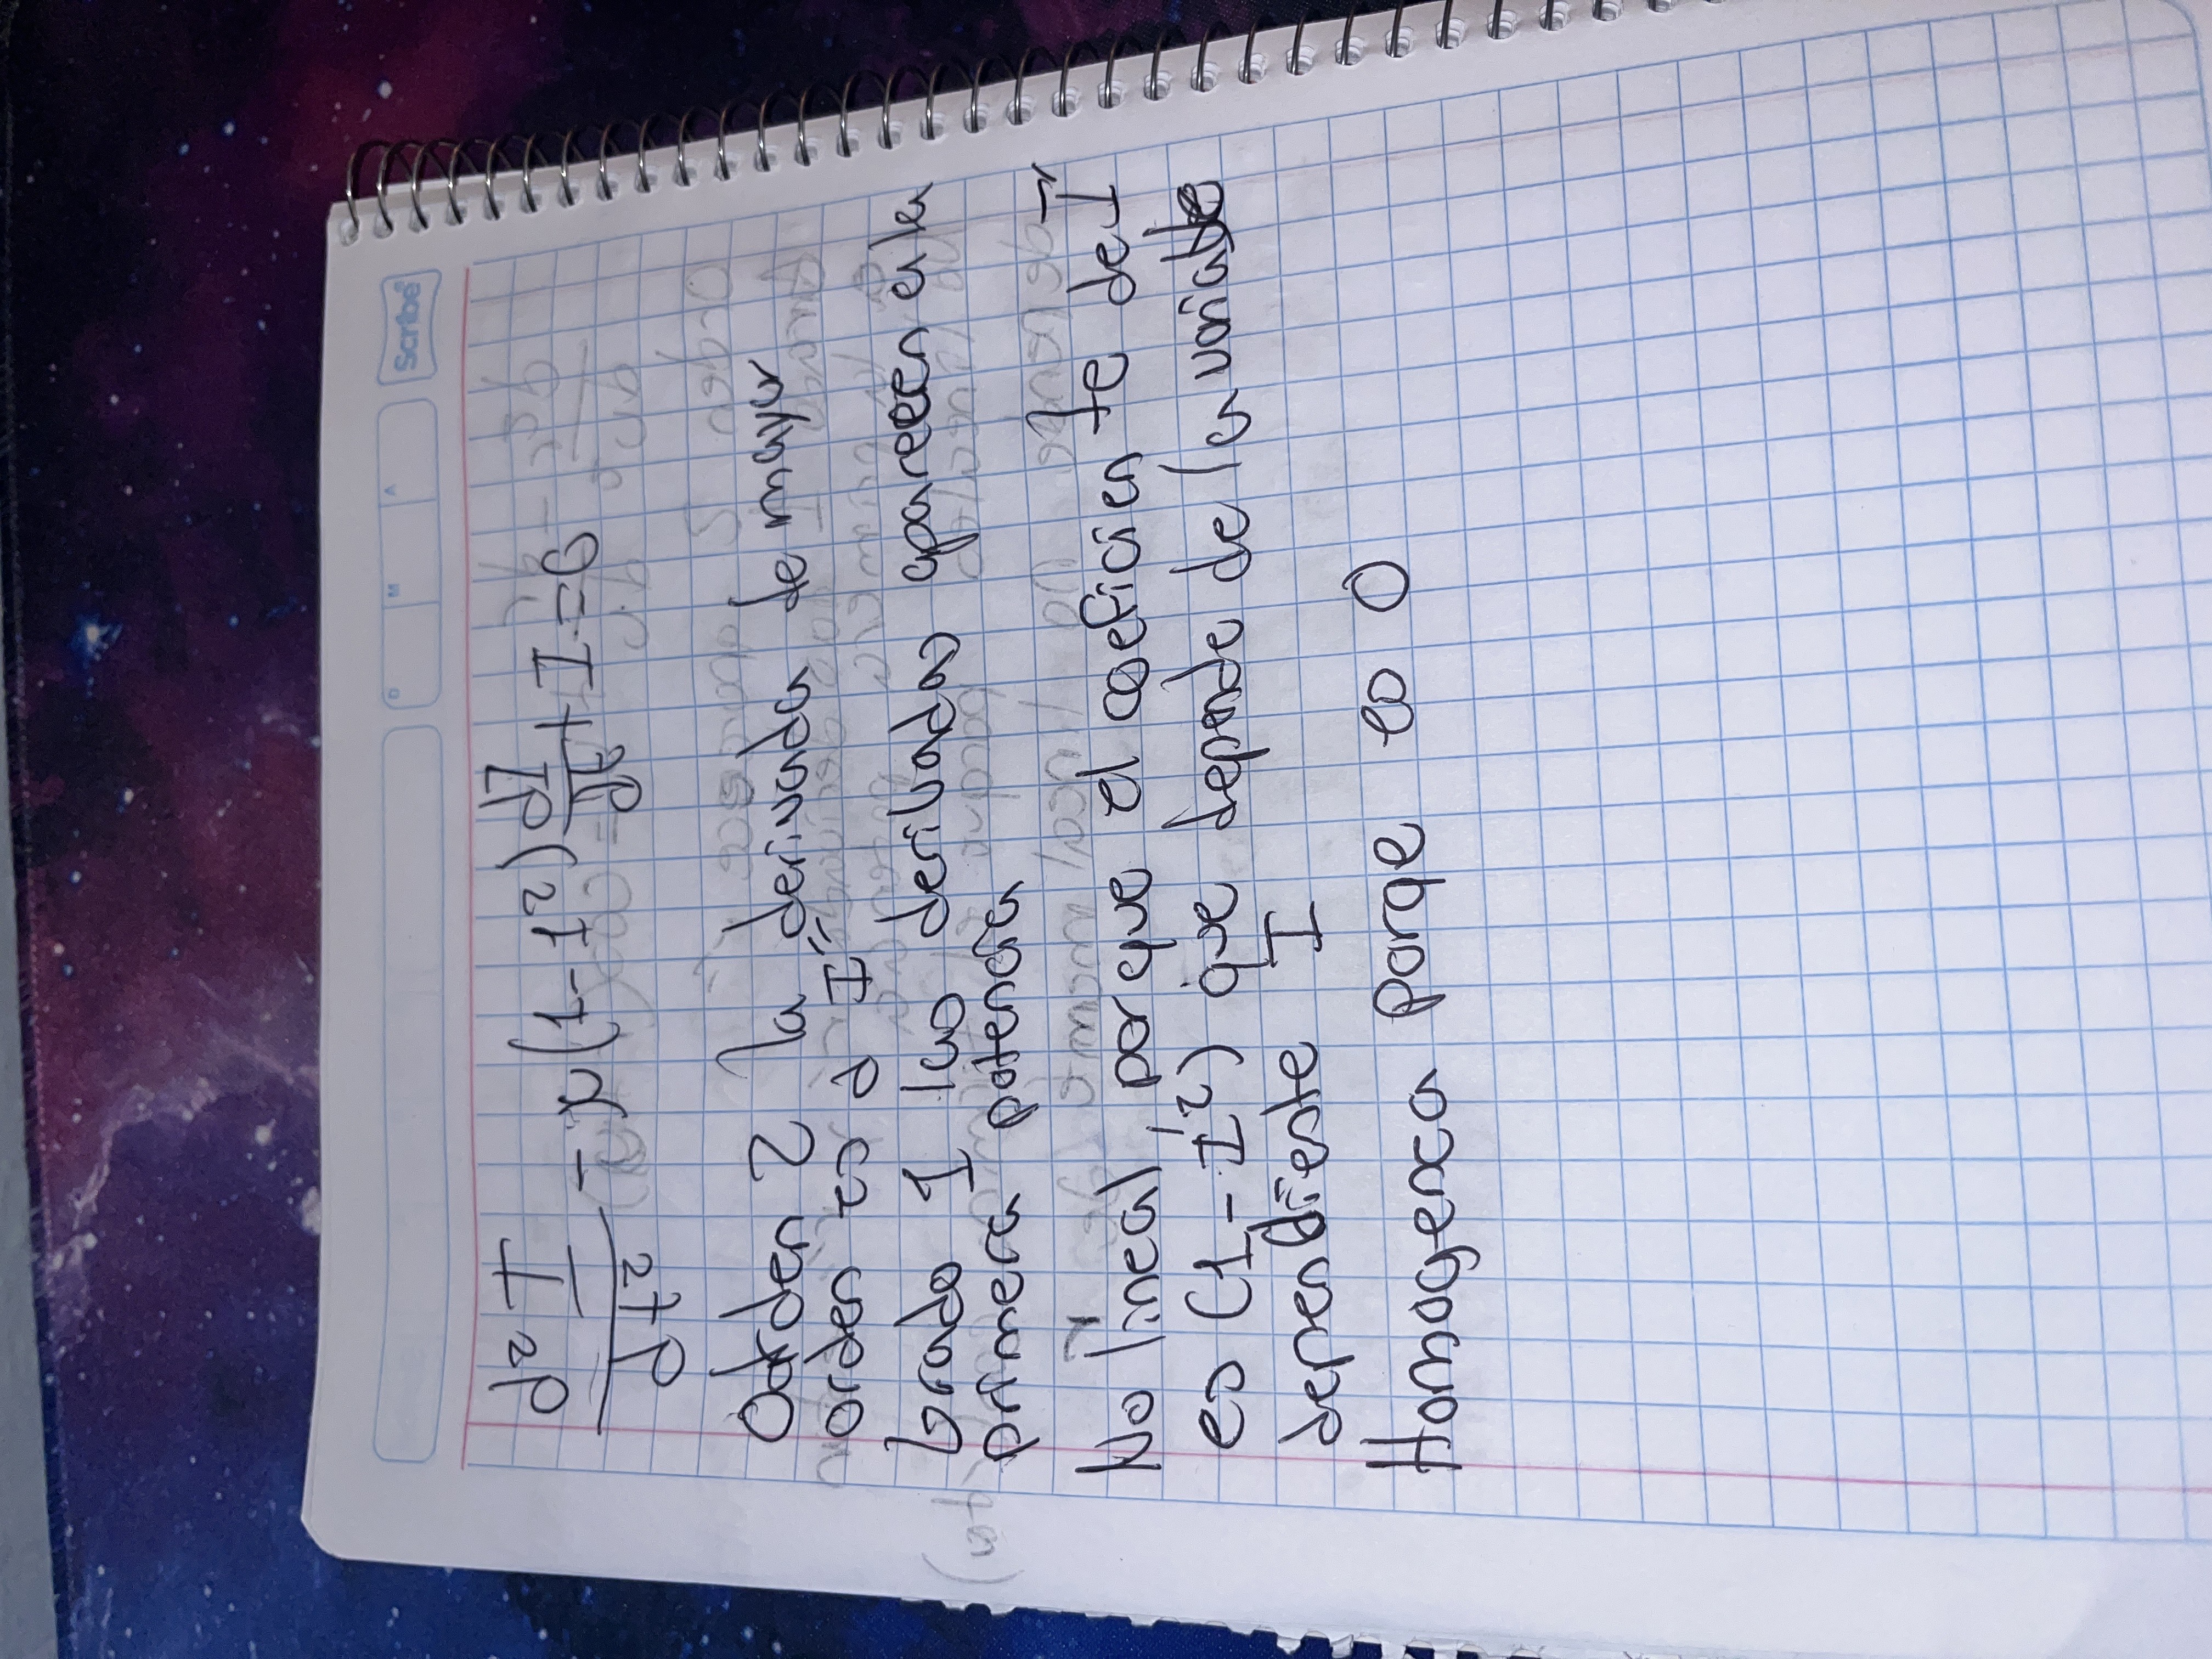 D M A Scribe
d²I/dt² - x(1-I²) dI/dt + I = 0
Orden 2 la derivada de mayor
orden es d I''
Grado 1 las derivadas aparecen a la
primera potencia
No lineal, porque el coeficiente de I'
es (1-I²) que depende de la variable
dependiente I
Homogenea porqe es 0